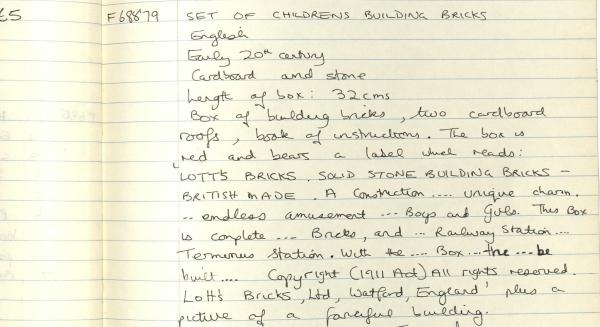 £5 F68879 SET OF CHILDRENS BUILDING BRICKS
English
Early 20th century
Cardboard and stone
Length of box: 32cms
Box of building bricks, two cardboard
roofs, book of instructions. The box is
red and bears a label which reads:
'LOTT'S BRICKS. SOLID STONE BUILDING BRICKS -
BRITISH MADE. A Construction .... unique charm.
... endless amusement ... Boys and Girls. This Box
is complete ... Bricks, and ... Railway Station ....
Terminus Station. With the .... Box ... the ... be
built .... Copyright (1911 Act) All rights reserved.
Lott's Bricks, Ltd, Watford, England' plus a
picture of a fanciful building.